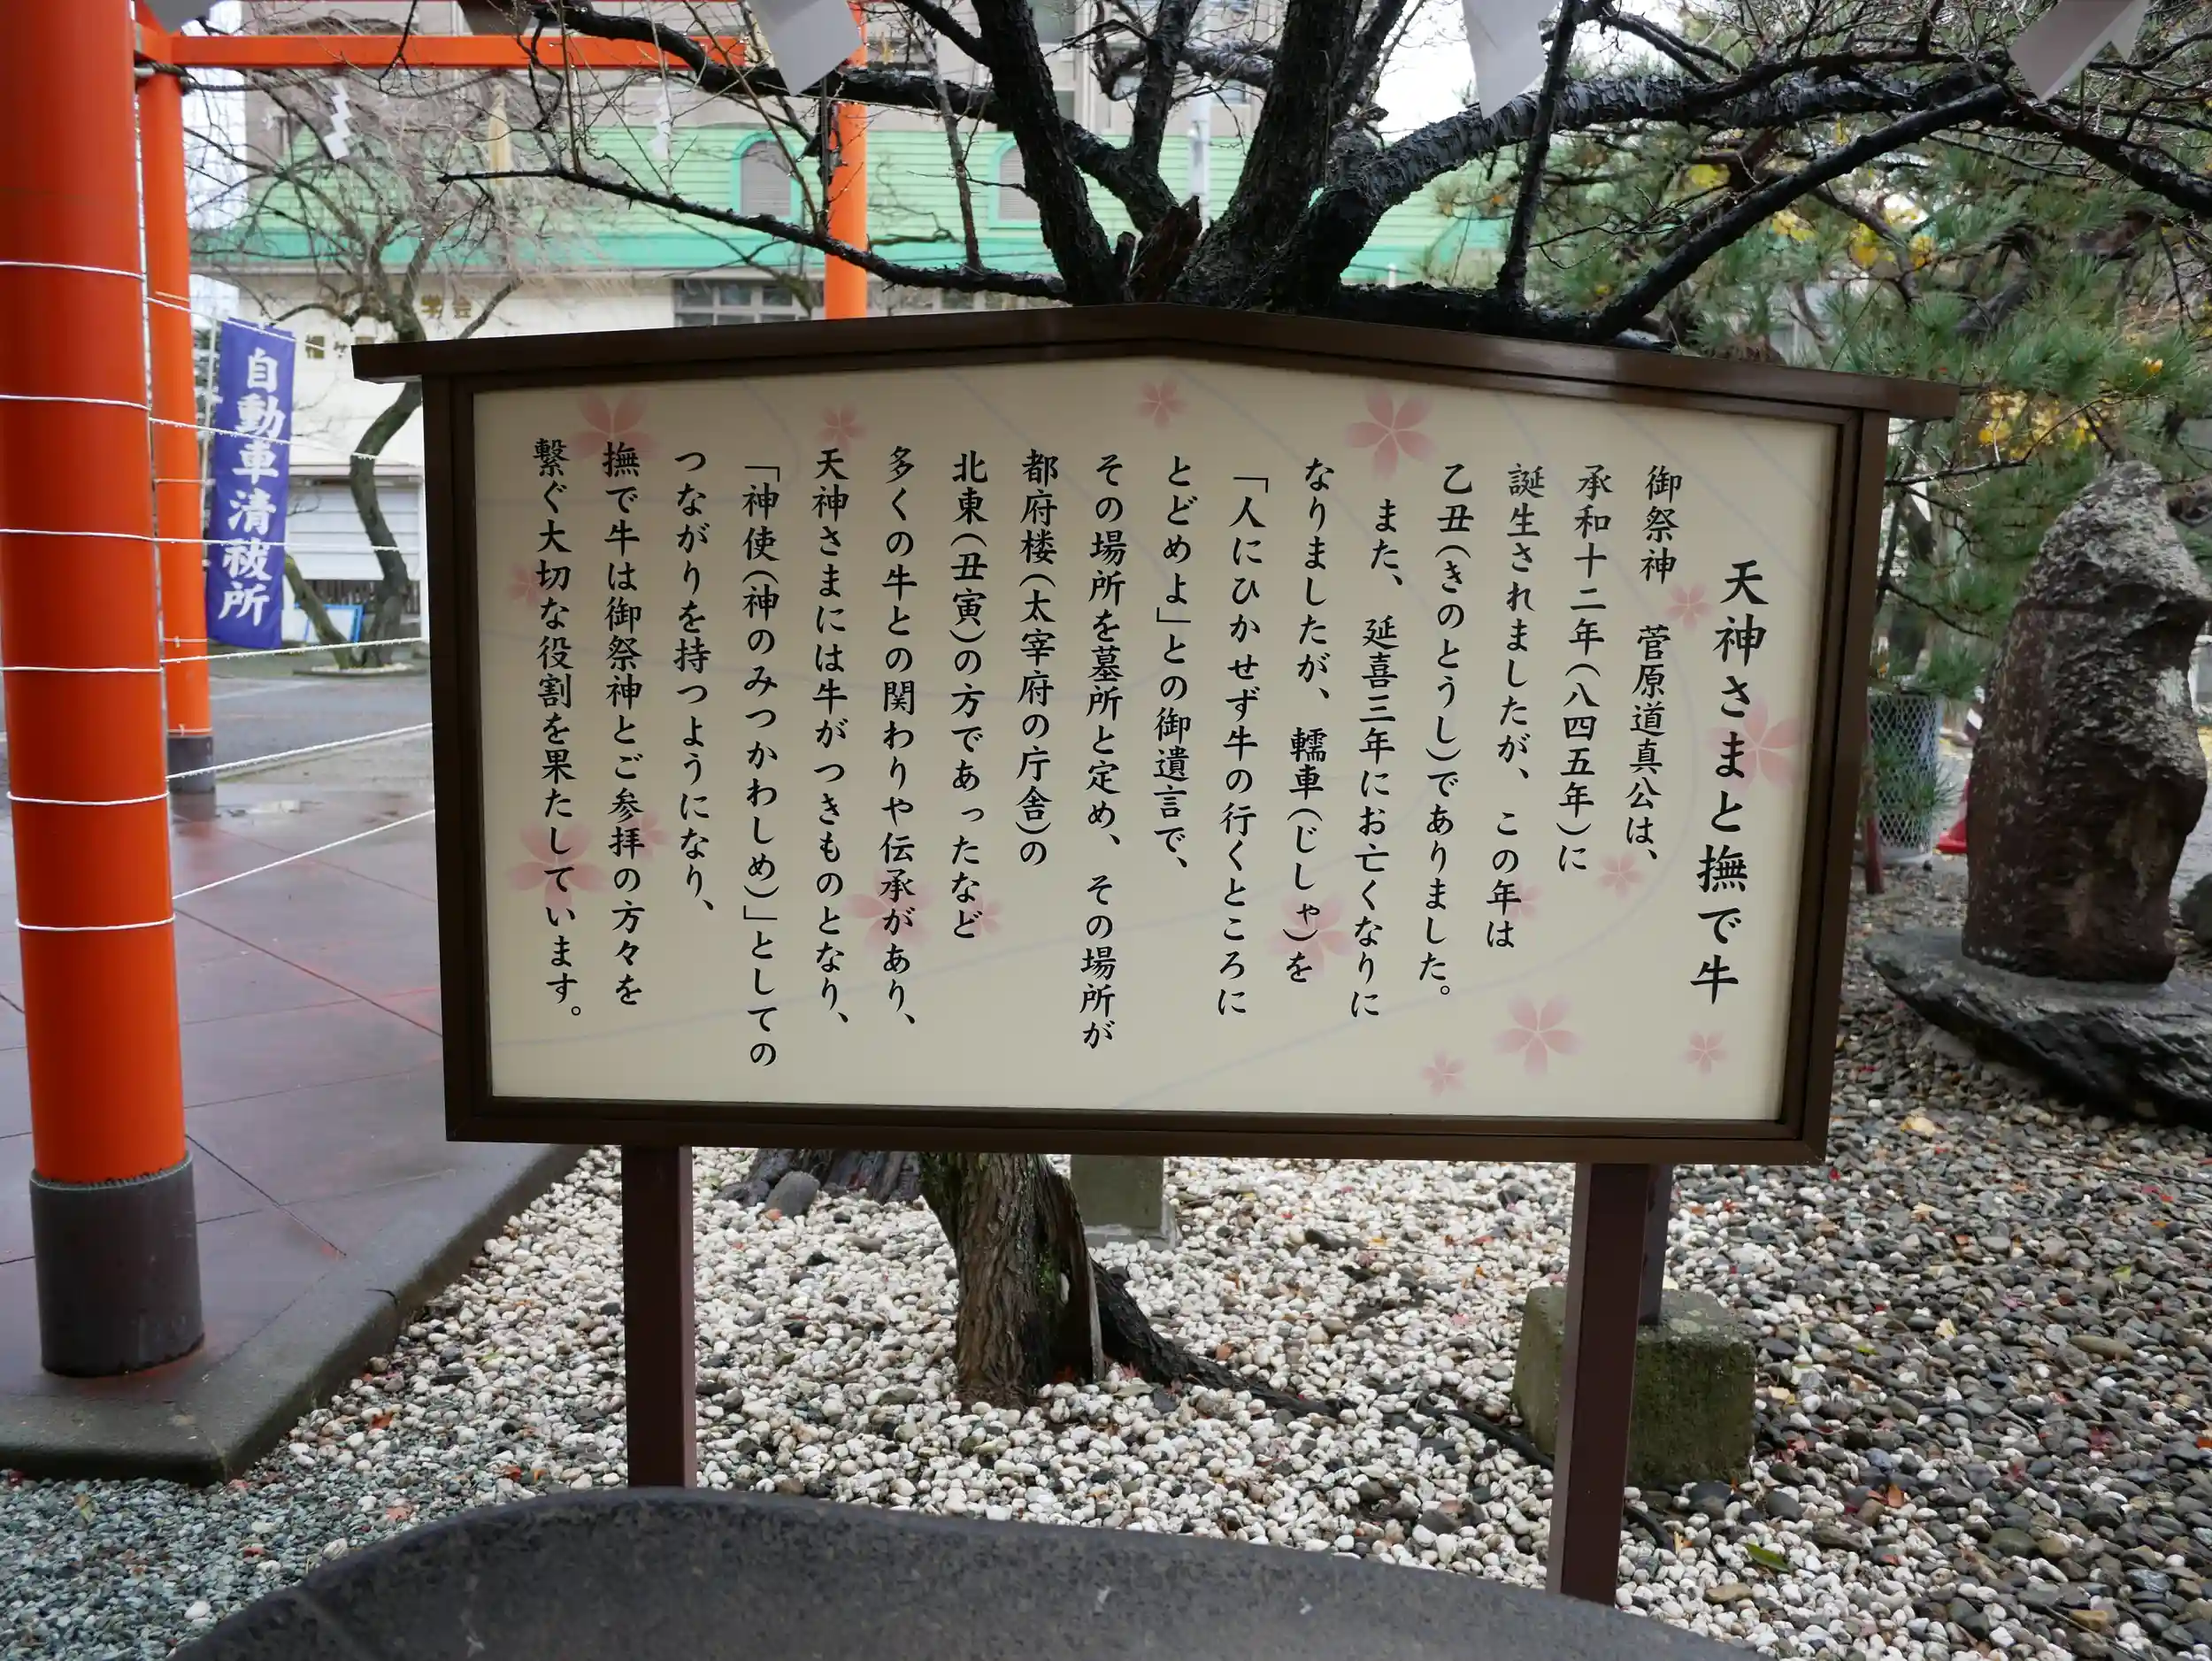 天神さまと撫で牛
御祭神　菅原道真公は、
承和十二年(八四五年)に
誕生されましたが、この年は
乙丑(きのとうし)でありました。
また、延喜三年にお亡くなりに
なりましたが、轜車(じしゃ)を
「人にひかせず牛の行くところに
とどめよ」との御遺言で、
その場所を墓所と定め、その場所が
都府楼(太宰府の庁舎)の
北東(丑寅)の方であったなど
多くの牛との関わりや伝承があり、
天神さまには牛がつきものとなり、
「神使(神のみつかわしめ)」としての
つながりを持つようになり、
撫で牛は御祭神とご参拝の方々を
繋ぐ大切な役割を果たしています。
自動車清祓所
学会